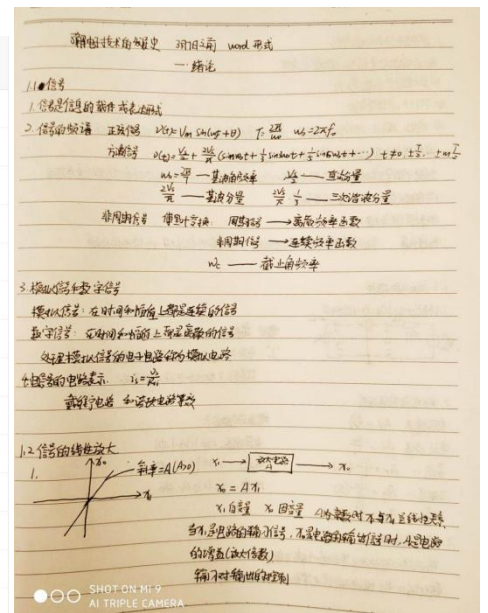 了解电子技术的发展史 3月7日之前 word 形式
一. 绪论
1.1 信号
1. 信号是信息的载体或表达形式
2. 信号的频谱 正弦信号 v(t)=Vm sin(ω₀t+θ) T=2π/ω₀ ω₀=2πf₀
方波信号 v(t)=Vs/2+2Vs/π(sinω₀t+1/3 sin3ω₀t+1/5 sin5ω₀t+…)
ω₀=2π/T —— 基波角频率 Vs/2 —— 直流分量
2Vs/π —— 基波分量 2Vs/π·1/3 —— 三次谐波分量
非周期信号 傅里叶变换: 周期信号 → 离散频率函数
非周期信号 → 连续频率函数
ωc —— 截止角频率
3. 模拟信号和数字信号
模拟信号: 在时间和幅值上都是连续的信号
数字信号: 在时间和幅值上都是离散的信号
处理模拟信号的电子电路称为模拟电路
信号的电路表示
戴维宁电路 和诺顿电路等效
1.2 信号的线性放大
1. x₀ 斜率=A(A>0) xᵢ → 放大电路 A → x₀
xᵢ x₀=Axᵢ
xᵢ 自变量 x₀ 因变量 A为常数时 x₀与xᵢ 呈线性关系
当xᵢ是电路的输入信号, x₀是电路的输出信号时, A是电路
的增益(放大倍数)
输入对输出的控制
SHOT ON MI 9
AI TRIPLE CAMERA